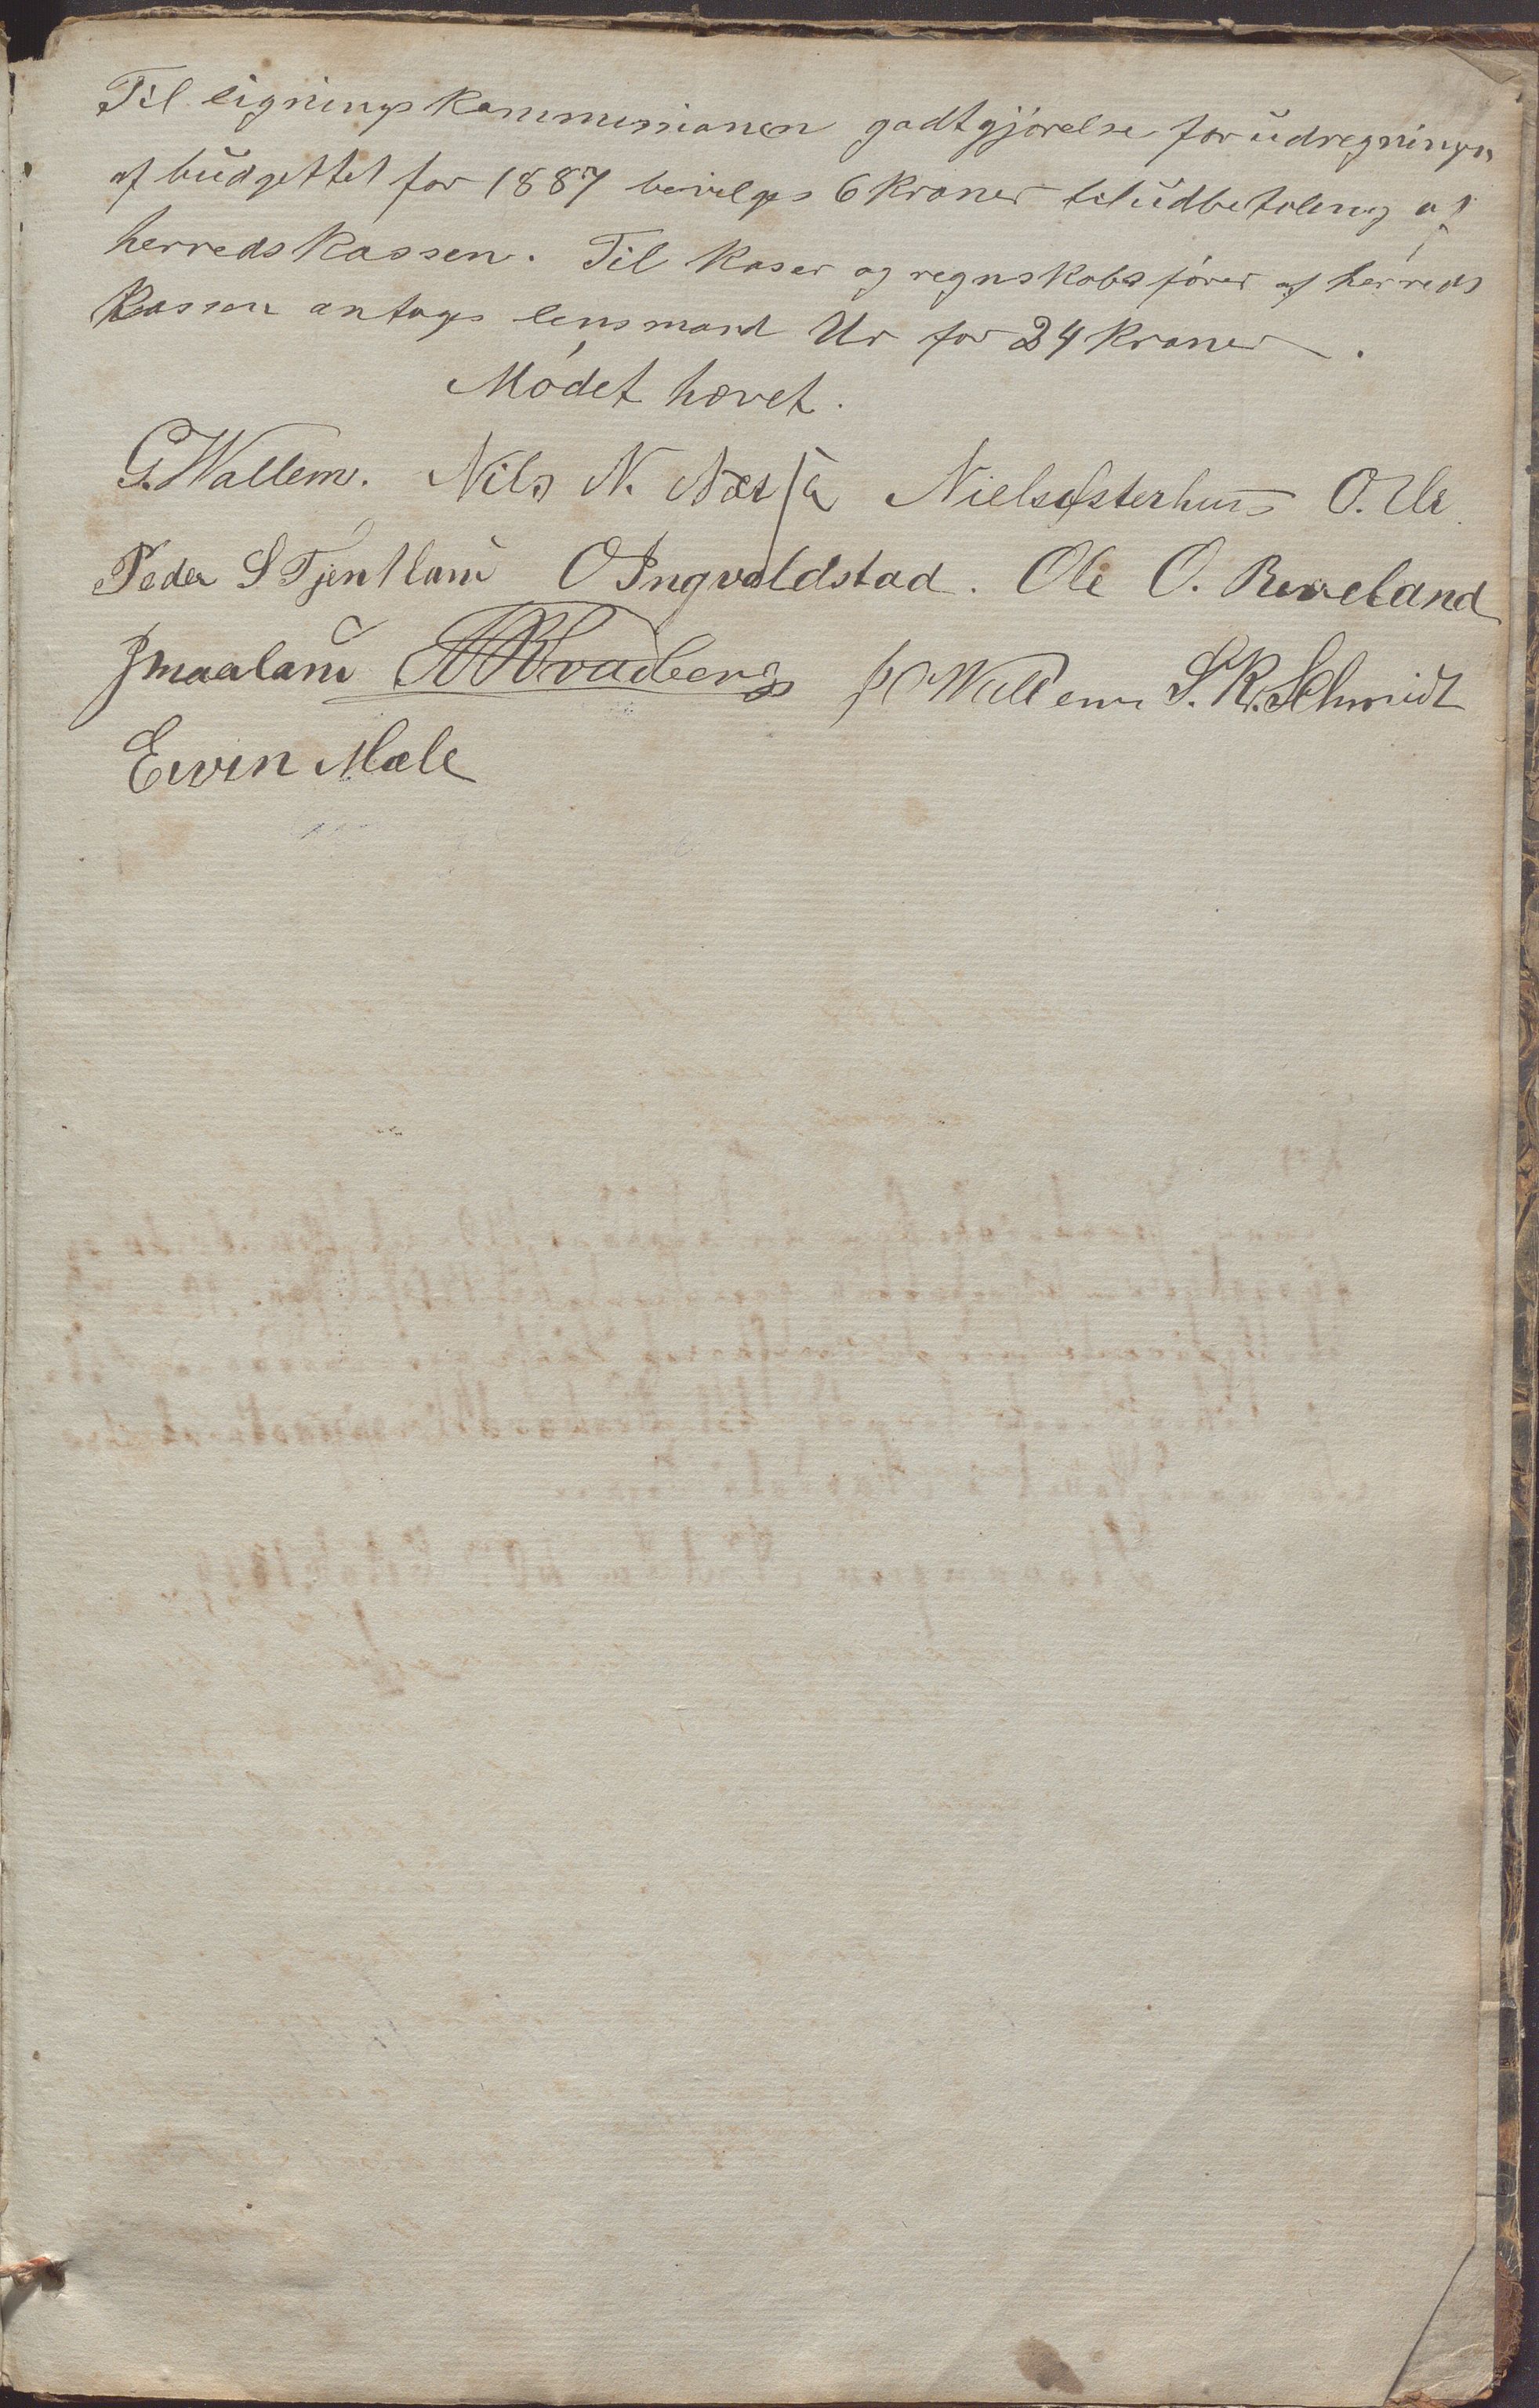 Til lignings kommmisionen godtgjörelse for udregningen
af budgettet for 1887 bevilges 6 kroner til udbetaling af
herredskassen. Til kaser og regnskabsförer af herreds
kassen antages lensmand Ur for 24 kroner.
Mödet hævet.
G. Wallem. Nils N. Næssa Niels Østerhus O. Ur
Peder S Tjentland O Ingvaldstad. Ole O. Reveland
J maaland A Bradberg P O Wallem S. K. Schmidt
Eivin Mæle